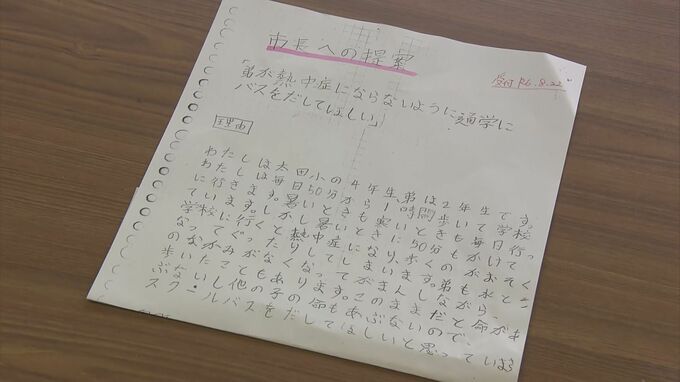 市長への提案
受付 R6.8.22
「弟が熱中症にならないように通学に
バスをだしてほしい」
理由
わたしは太田小の4年生、弟は2年生です。
わたしは毎日50分から1時間歩いて学校
に行きます。暑いときも寒いときも毎日行っ
ています。しかし暑いときに50分もかけて
学校に行くと熱中症になり、歩くのがおそく
なってぐったりしてしまいます。弟も水とう
のなかみがなくなってがまんしながら、
歩いたこともあります。このままだと命があ
ぶないし他の子の命もあぶないので、
スクールバスをだしてほしいと思っています